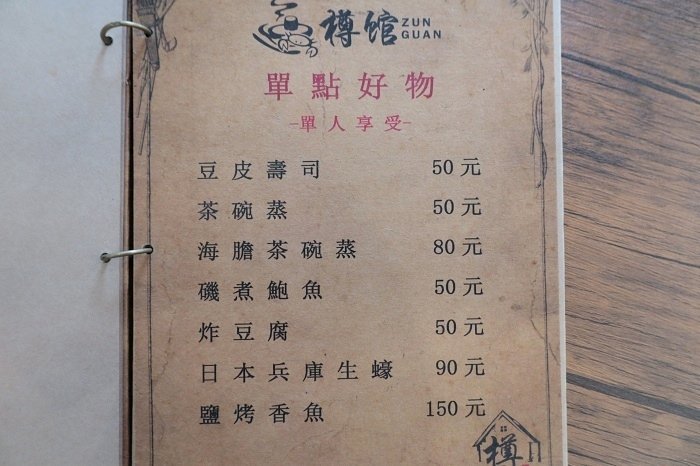 樽館 ZUN GUAN
單點好物
-單人享受-
豆皮壽司 50元
茶碗蒸 50元
海膽茶碗蒸 80元
磯煮鮑魚 50元
炸豆腐 50元
日本兵庫生蠔 90元
鹽烤香魚 150元
樽